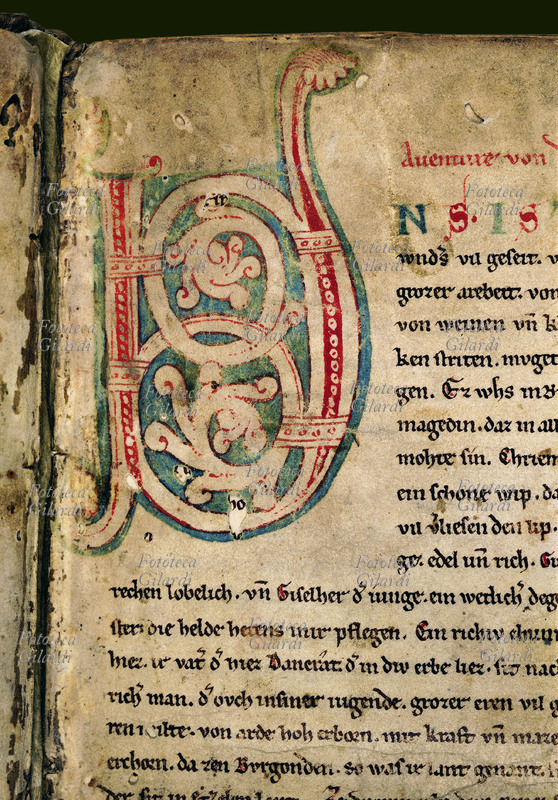 Auenture von
N S. I S
wnds vil geseit. v
grozer arebeit. von
von weinen vn̄ k
ken striten. mvget
gen. Ez whs in B
magedin. daz in all
mohte sin. Chriem
ein schone wip. da
vil v͛liesen den lip.
ge. edel vn̄ rich. G
rechen lobelich. vn̄ Giselher d͛ iunge. ein wetlich͛ deg
ster. die helde hetens inir pflegen. Ein richiv chuni
hiez. ir vat͛ d͛ hiez Dancrat. d͛ in div erbe liez. sit nach
rich man. d͛ ovch in siner iugende. grozer eren vil g
ren milte. von arde hoh erborn. mit kraft vn̄ maze
erchorn. da zen Bvrgonden. so was ir lant genant.
der sit in Etzelen lant.
Fototeca
Gilardi